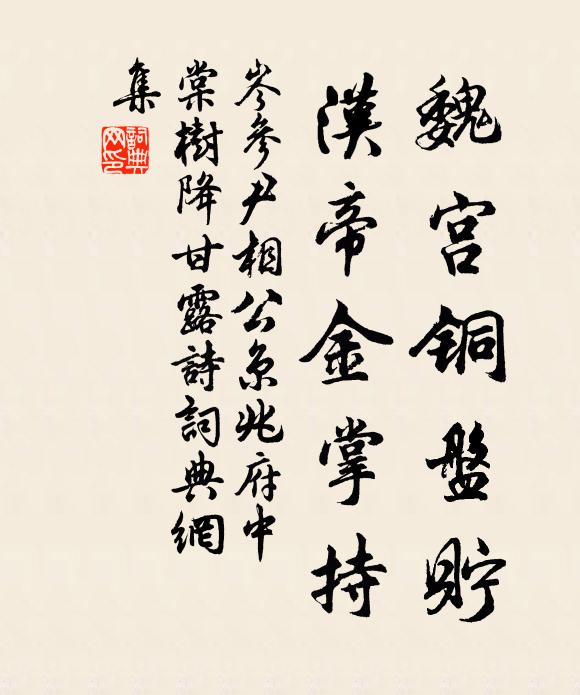 魏宫铜盤貯
漢帝金掌持
岑參尹相公京兆府中
棠樹降甘露詩詞典網
集
詞典
网印